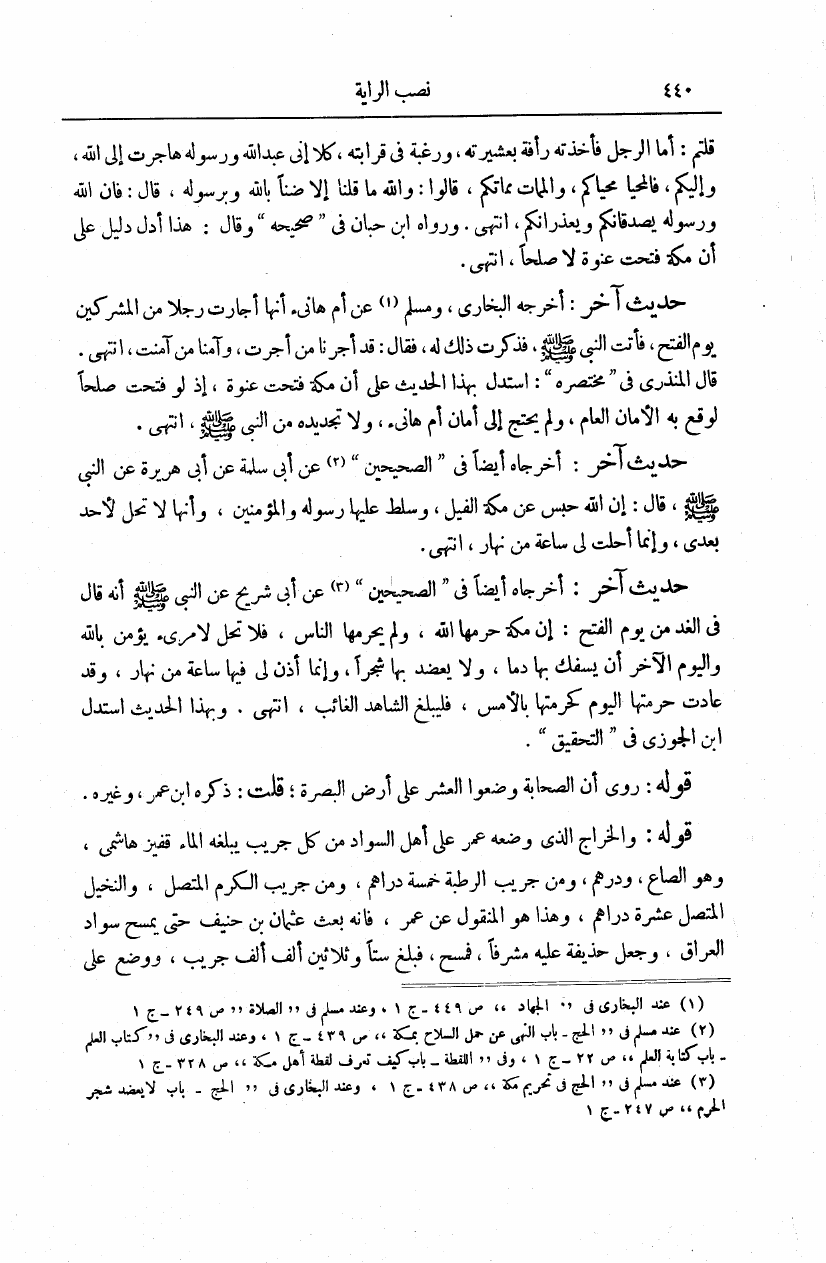 ٤٤٠
نصب الراية
قلتم : أما الرجل فأخذته رأفة بعشيرته ، ورغبة فى قرابته ، كلا إنى عبدالله ورسوله هاجرت إلى الله ،
وإليكم ، فالمحيا محياكم ، والممات مماتكم ، قالوا : والله ما قلنا إلا ضناً بالله وبرسوله ، قال : فان الله
ورسوله يصدقانكم ويعذرانكم ، انتهى . ورواه ابن حبان فى ” صحيحه “ وقال : هذا أدل دليل على
أن مكة فتحت عنوة لا صلحاً ، انتهى .
حديث آخر : أخرجه البخارى ، ومسلم (١) عن أم هانىء أنها أجارت رجلا من المشركين
يوم الفتح ، فأتت النبى ﷺ ، فذكرت ذلك له ، فقال : قد أجرنا من أجرت ، وآمنا من آمنت ، انتهى .
قال المنذرى فى ” مختصره “ : استدل بهذا الحديث على أن مكة فتحت عنوة ، إذ لو فتحت صلحاً
لوقع به الأمان العام ، ولم يحتج إلى أمان أم هانىء ، ولا تجديده من النبى ﷺ ، انتهى .
حديث آخر : أخرجاه أيضاً فى ” الصحيحين “ (٢) عن أبى سلمة عن أبى هريرة عن النبى
ﷺ ، قال : إن الله حبس عن مكة الفيل ، وسلط عليها رسوله والمؤمنين ، وأنها لا تحل لأحد
بعدى ، وإنما أحلت لى ساعة من نهار ، انتهى .
حديث آخر : أخرجاه أيضاً فى ” الصحيحين “ (٣) عن أبى شريح عن النبى ﷺ أنه قال
فى الغد من يوم الفتح : إن مكة حرمها الله ، ولم يحرمها الناس ، فلا تحل لامرىء يؤمن بالله
واليوم الآخر أن يسفك بها دما ، ولا يعضد بها شجراً ، وإنما أذن لى فيها ساعة من نهار ، وقد
عادت حرمتها اليوم كحرمتها بالأمس ، فليبلغ الشاهد الغائب ، انتهى . وبهذا الحديث استدل
ابن الجوزى فى ” التحقيق “ .
قوله : روى أن الصحابة وضعوا العشر على أرض البصرة ؛ قلت : ذكره ابن عمر ، وغيره .
قوله : والخراج الذى وضعه عمر على أهل السواد من كل جريب يبلغه الماء قفيز هاشمى ،
وهو الصاع ، ودرهم ، ومن جريب الرطبة خمسة دراهم ، ومن جريب الكرم المتصل ، والنخيل
المتصل عشرة دراهم ، وهذا هو المنقول عن عمر ، فانه بعث عثمان بن حنيف حتى يمسح سواد
العراق ، وجعل حذيفة عليه مشرفاً ، فمسح ، فبلغ ستاً وثلاثين ألف ألف جريب ، ووضع على
(١) عند البخارى فى ,, الجهاد ،، ص ٤٤٩ ـ ج ١ ، وعند مسلم فى ,, الصلاة ,, ص ٢٤٩ ـ ج ١
(٢) عند مسلم فى ,, الحج ـ باب النهى عن حمل السلاح بمكة ،، ص ٤٣٩ ـ ج ١ ، وعند البخارى فى ,, كتاب العلم
ـ باب كتابة العلم ،، ص ٢٢ ـ ج ١ ، وفى ,, اللقطة ـ باب كيف تعرف لقطة أهل مكة ،، ص ٣٢٨ ـ ج ١
(٣) عند مسلم فى ,, الحج فى تحريم مكة ،، ص ٤٣٨ ـ ج ١ ، وعند البخارى فى ,, الحج ـ باب لا يعضد شجر
الحرم ،، ص ٢٤٧ ـ ج ١